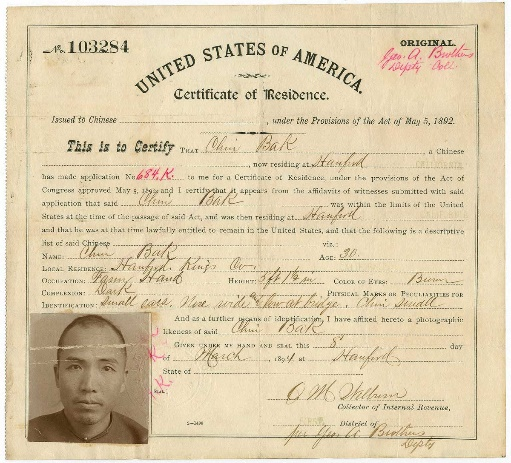 No. 103284
ORIGINAL.
Geo. A. Brothers
Depty Coll
UNITED STATES OF AMERICA.
Certificate of Residence.
Issued to Chinese , under the Provisions of the Act of May 5, 1892.
This is to Certify THAT Chin Bak a Chinese
, now residing at Hanford
has made application No. 684.K. to me for a Certificate of Residence, under the provisions of the Act of
Congress approved May 5, 1892 and I certify that it appears from the affidavits of witnesses submitted with said
application that said Chin Bak was within the limits of the United
States at the time of the passage of said Act, and was then residing at Hanford
and that he was at that time lawfully entitled to remain in the United States, and that the following is a descriptive
list of said Chinese viz.:
NAME: Chin Bak AGE: 30
LOCAL RESIDENCE: Hanford Kings Co
OCCUPATION: Farm Hand HEIGHT: 5 ft 1½ in COLOR OF EYES: Brown
COMPLEXION: Dark PHYSICAL MARKS OR PECULIARITIES FOR
IDENTIFICATION: Small ears. Nose wide & low at bridge. Chin Small
And as a further means of identification, I have affixed hereto a photographic
likeness of said Chin Bak
GIVEN UNDER MY HAND AND SEAL this 8" day
of March , 1894 at Hanford
State of
O M Welburn
Collector of Internal Revenue,
District of
per Geo A Brothers
Depty